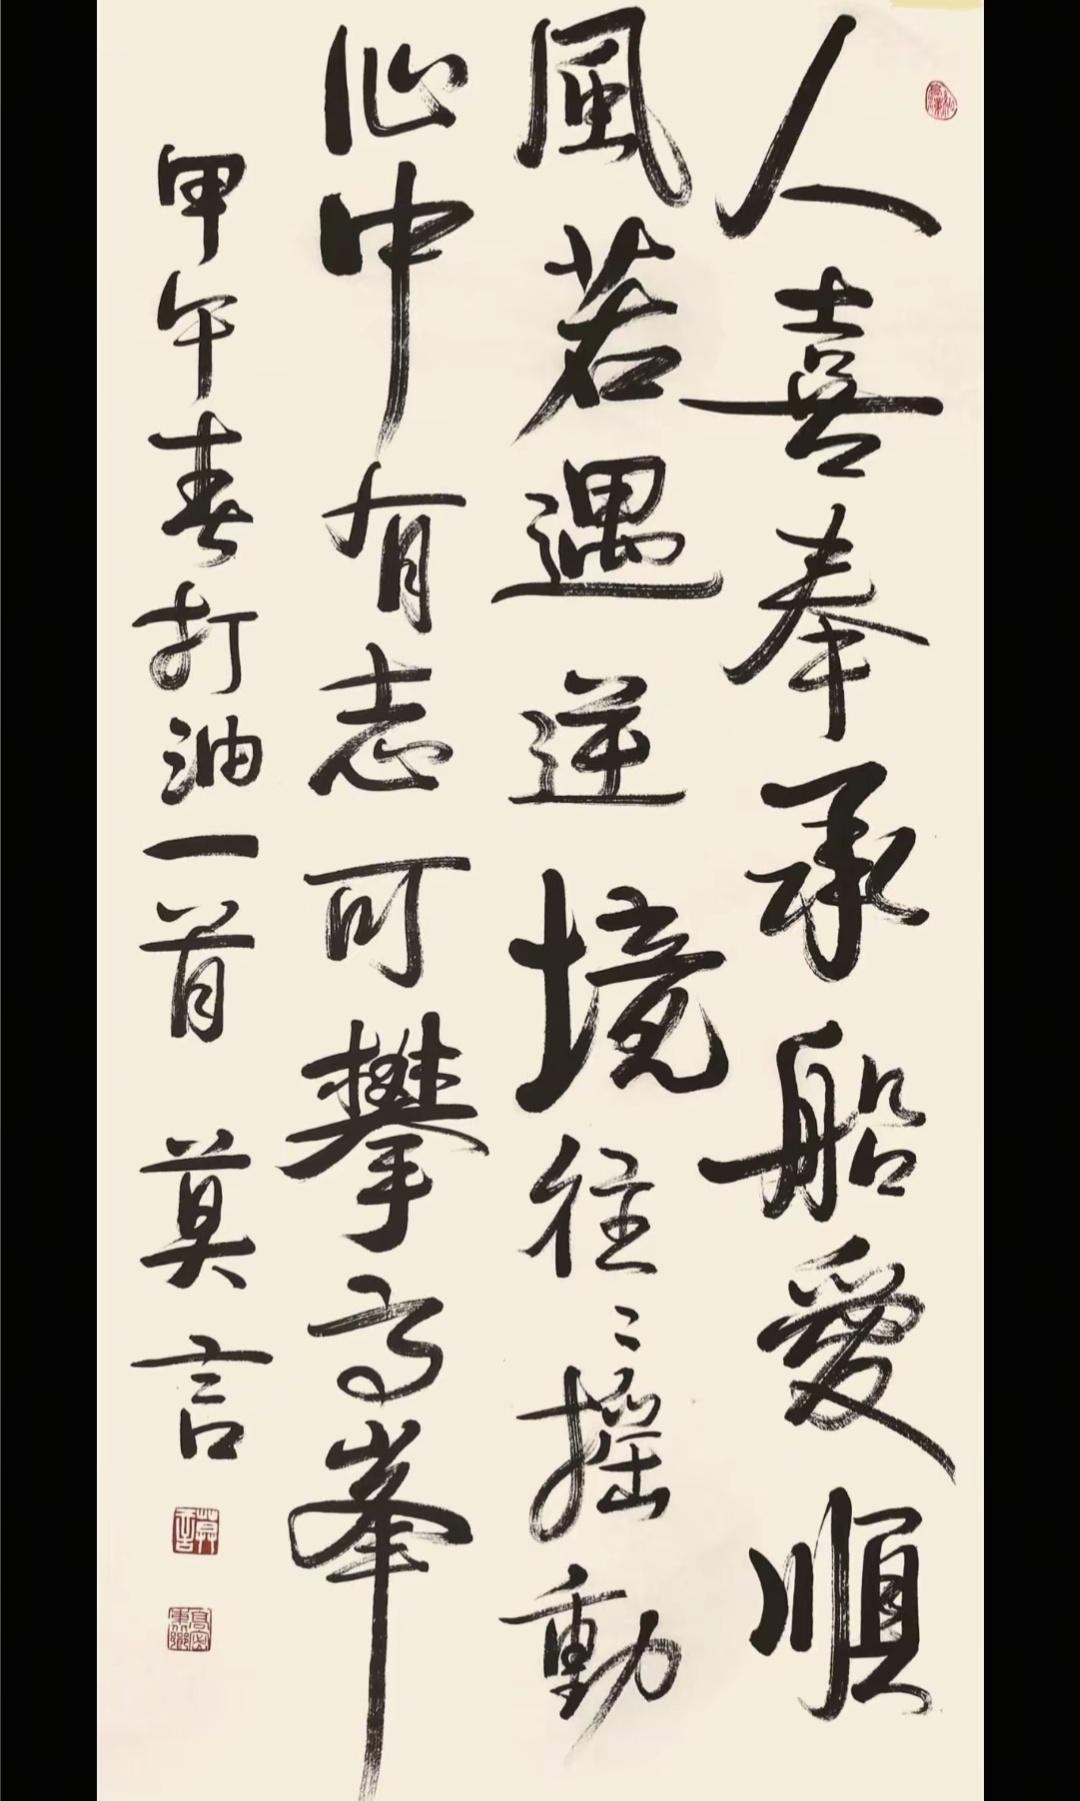 人喜奉承船愛順
風若遇逆境往〻摇動
心中有志可攀高峯
甲午春打油一首 莫言
莫言